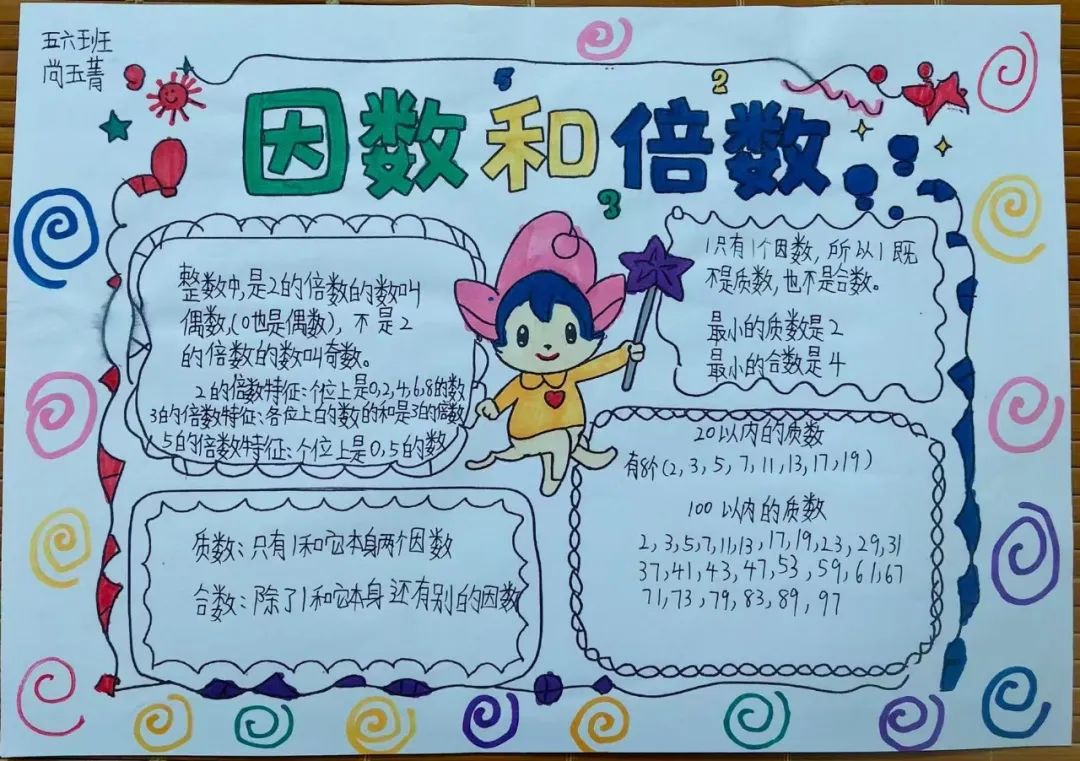 五六班
尚玉菁
5
2
因数和倍数
3
整数中,是2的倍数的数叫
偶数,(0也是偶数),不是2
的倍数的数叫奇数。
2的倍数特征:个位上是0,2,4,6,8的数
3的倍数特征:各位上的数的和是3的倍数
5的倍数特征:个位上是0,5的数
1只有1个因数,所以1既
不是质数,也不是合数。
最小的质数是2
最小的合数是4
质数:只有1和它本身两个因数
合数:除了1和它本身还有别的因数
20以内的质数
有8个(2,3,5,7,11,13,17,19)
100以内的质数
2,3,5,7,11,13,17,19,23,29,31
37,41,43,47,53,59,61,67
71,73,79,83,89,97